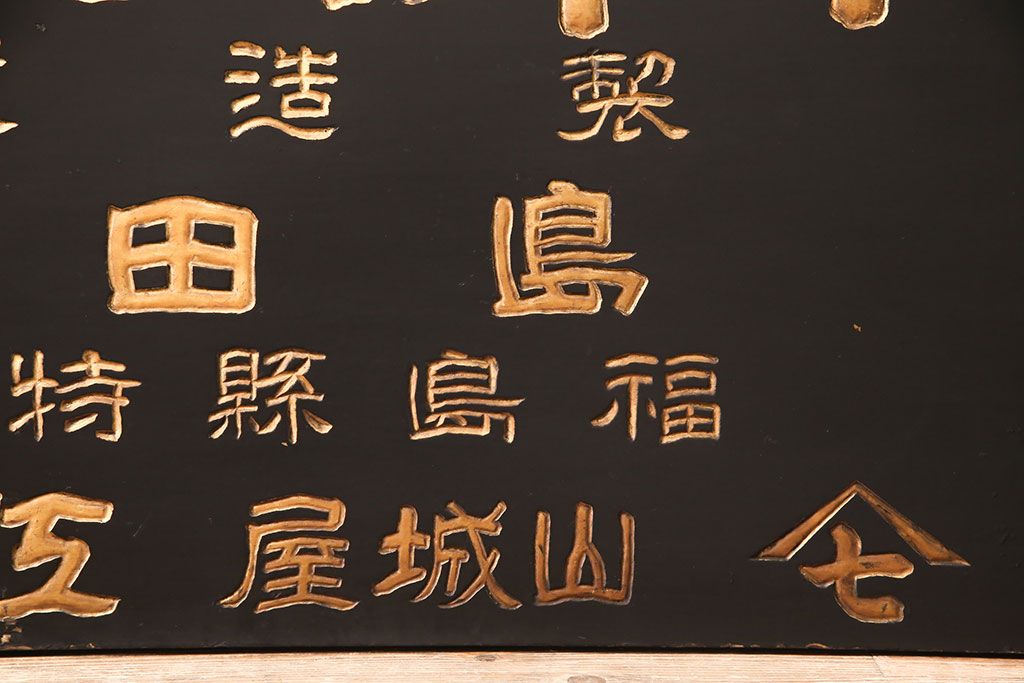 製造
島田
福島縣特
七 山城屋工